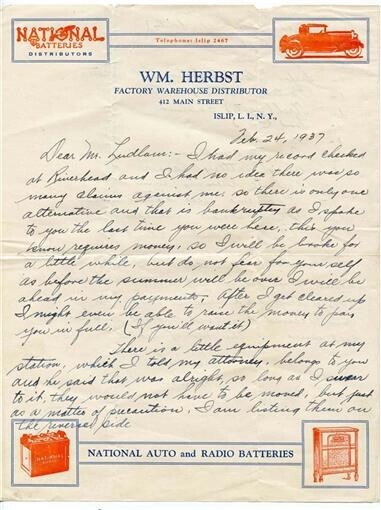 NATIONAL
BATTERIES
DISTRIBUTORS
Telephone: Islip 2467
WM. HERBST
FACTORY WAREHOUSE DISTRIBUTOR
412 MAIN STREET
ISLIP, L. I., N. Y.,
Feb. 24, 1937
Dear Mr. Ludlam:- I had my record checked
at Riverhead and I had no idea there was so
many claims against me: so there is only one
alternative and that is bankruptcy as I spoke
to you the last time you were here, this you
know requires money, so I will be broke for
a little while, but do not fear for yourself
as before the summer will be over I will be
ahead in my payments, After I get cleared up
I might even be able to raise the money to pay
you in full, (If you'll want it)
There is a little equipment at my
station, which I told my attorney, belongs to you
and he said that was alright, so long as I swear
to it, they would not have to be moved, but just
as a matter of precaution, I am listing them on
the reverse side
NATIONAL
NATIONAL AUTO and RADIO BATTERIES